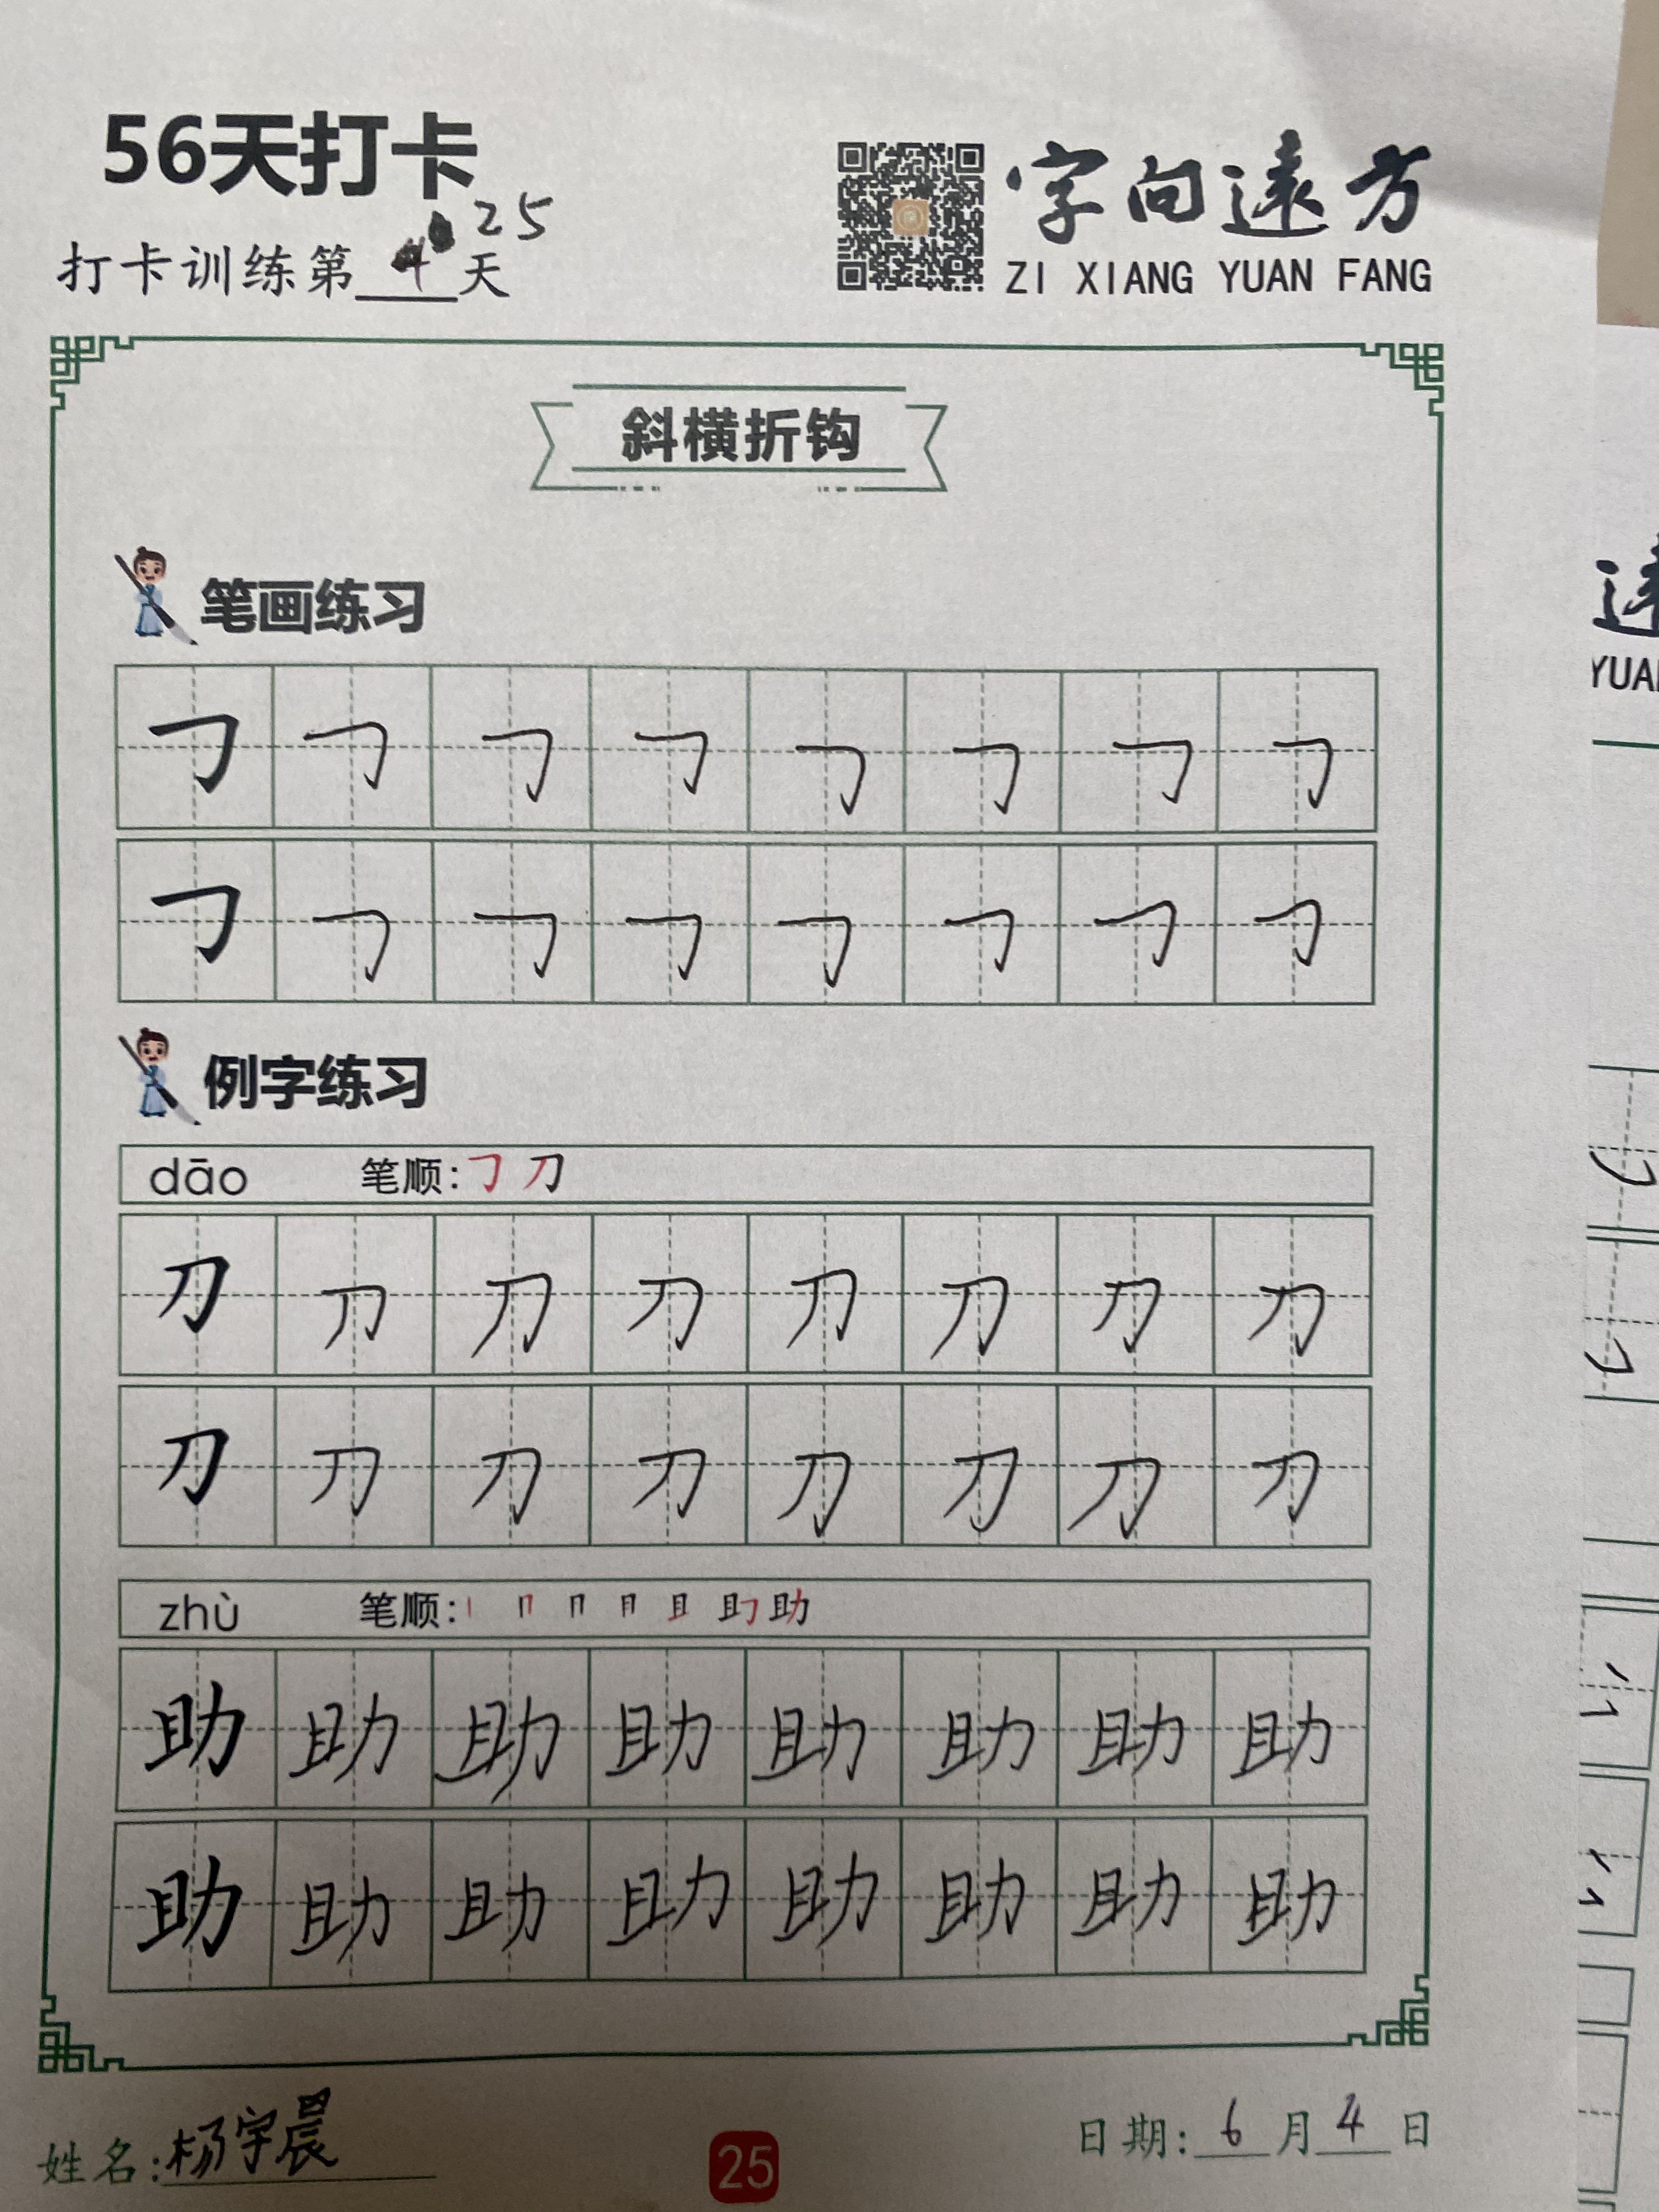 56天打卡
25
打卡训练第 4 天
字向遠方
ZI XIANG YUAN FANG
斜横折钩
笔画练习
𠃌 𠃌 𠃌 𠃌 𠃌 𠃌 𠃌 𠃌
𠃌 𠃌 𠃌 𠃌 𠃌 𠃌 𠃌 𠃌
例字练习
dāo 笔顺: 𠃌 刀
刀 刀 刀 刀 刀 刀 刀 刀
刀 刀 刀 刀 刀 刀 刀 刀
zhù 笔顺: 助
助 助 助 助 助 助 助 助
助 助 助 助 助 助 助 助
姓名:杨宇晨
25
日期: 6 月 4 日
遠
YUA